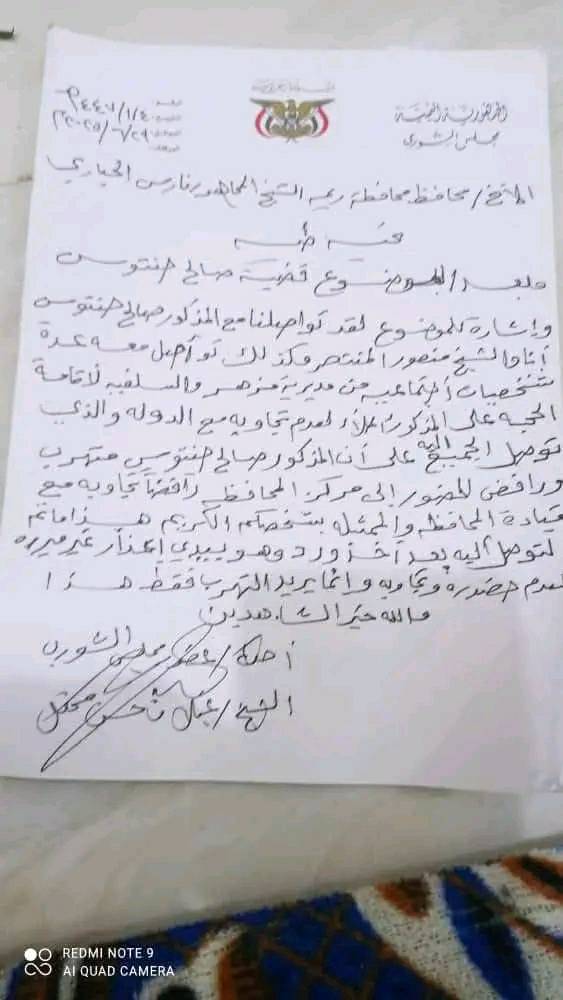 الجمهورية اليمنية
مجلس الشورى
١٤٤٧/١/٤
٢٠٢٥/٦/٢٩م
الأخ/ محافظ محافظة ريمه الشيخ المجاهد فارس الحباري
تحية طيبه
وبعد/ الموضوع قضية صالح حنتوس
وإشارة للموضوع لقد تواصلنا مع المذكور صالح حنتوس
أنا والشيخ منصور المنتصر وكذلك تواصل معه عدة
شخصيات إجتماعيه من مديرية مزهر والسلفيه لأقامة
الحجه على المذكور لعدم تجاوبه مع الدوله والذي
توصل الجميع اليه على أن المذكور صالح حنتوس متهرب
ورافض للحضور إلى مركز المحافظه رافضاً تجاوبه مع
قيادة المحافظه والممثله بشخصكم الكريم هذا ماتم
التوصل أليه بعد أخذ ورد وهو يبدي إعذار غير مبرره
لعدم حضوره وتجاوبه وانما يريد التهرب فقط هذا
والله خير الشاهدين
أخوكم/ عضو مجلس الشورى
الشيخ/
REDMI NOTE 9
AI QUAD CAMERA